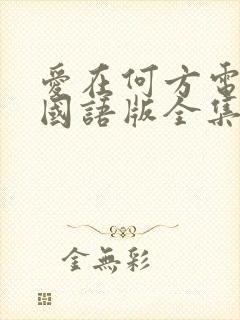 愛在何方電
國語版全集
金無彩